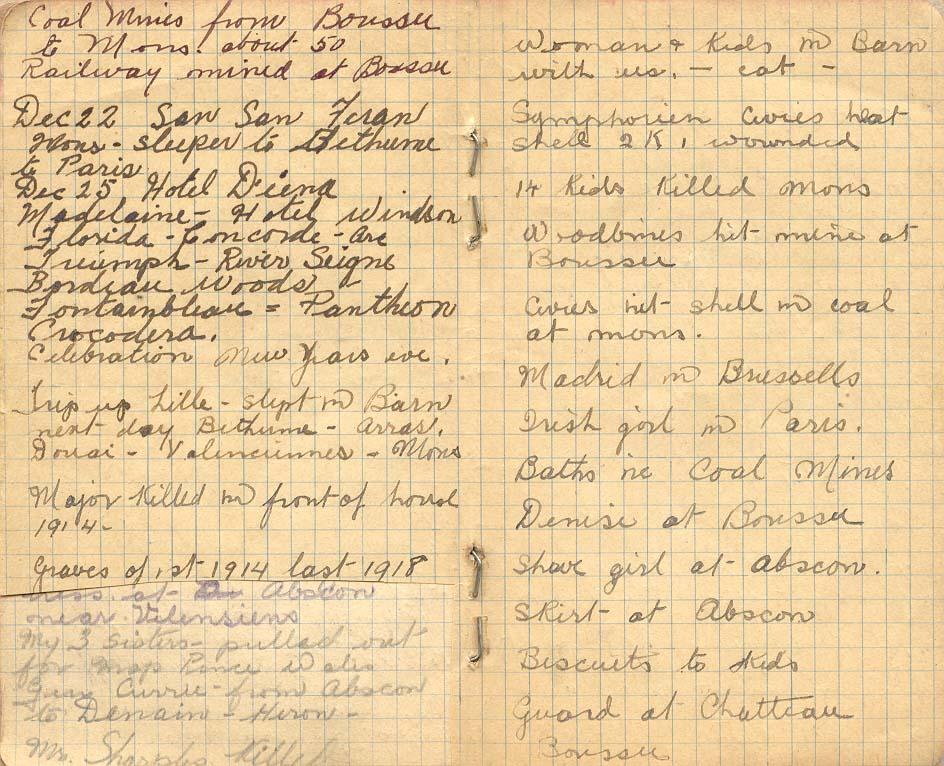 Coal Mines from Boussu
to Mons. about 50
Railway mined at Boussu
Dec 22 San San Feran
Mons - sleeper to Bethume
to Paris
Dec 25 Hotel D'iena
Madelaine - Hotel Windson
Florida - Concorde - Arc
Triumph - River Seigne
Bordeau Woods -
Fontainbleau = Pantheon
Crocodera.
Celebration New Years eve.
Trip up Lille - slept in Barn
next day Bethume - Arras.
Douai - Valenciennes - Mons
Major killed in front of
1914 -
Graves of 1st 1914 last 1918
at Abscon
near Vilensiens
My 3 sisters - pulled out
for Wales
Currie - from Abscon
to Denain - Heron -
Mr. Killed
Woman & Kids in Barn
with us. - eat -
Symphorien Civies
shell 2 K, 1 wounded
14 Kids Killed Mons
Woodbines hit mine at
Boussu
Civies hit shell in coal
at mons.
Madrid in Brussells
Irish girl in Paris.
Baths in Coal Mines
Denise at Boussu
Shave girl at Abscon.
Skirt at Abscon
Biscuits to kids
Guard at Chatteau
Boussu